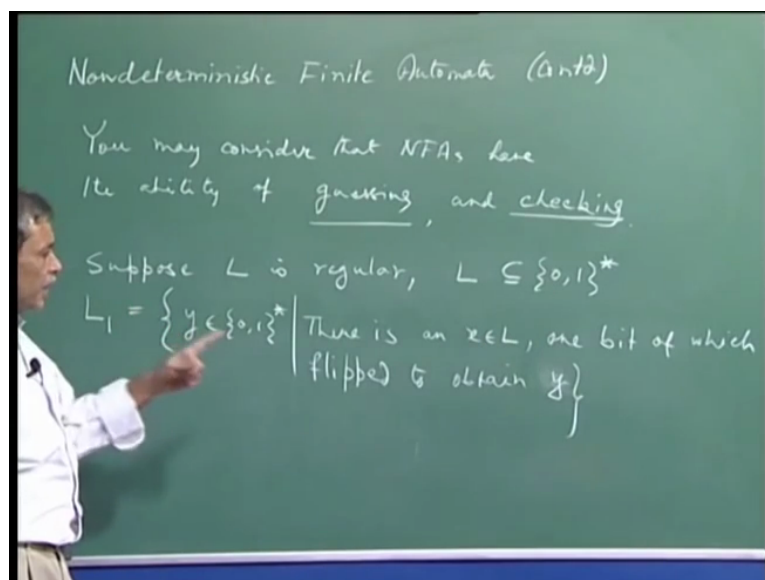 Nondeterministic Finite Automata (Contd)
You may consider that NFAs have
the ability of guessing, and checking.
Suppose L is regular, L ⊆ {0,1}*
L₁ = { y ∈ {0,1}* | There is an x ∈ L, one bit of which
flipped to obtain y}